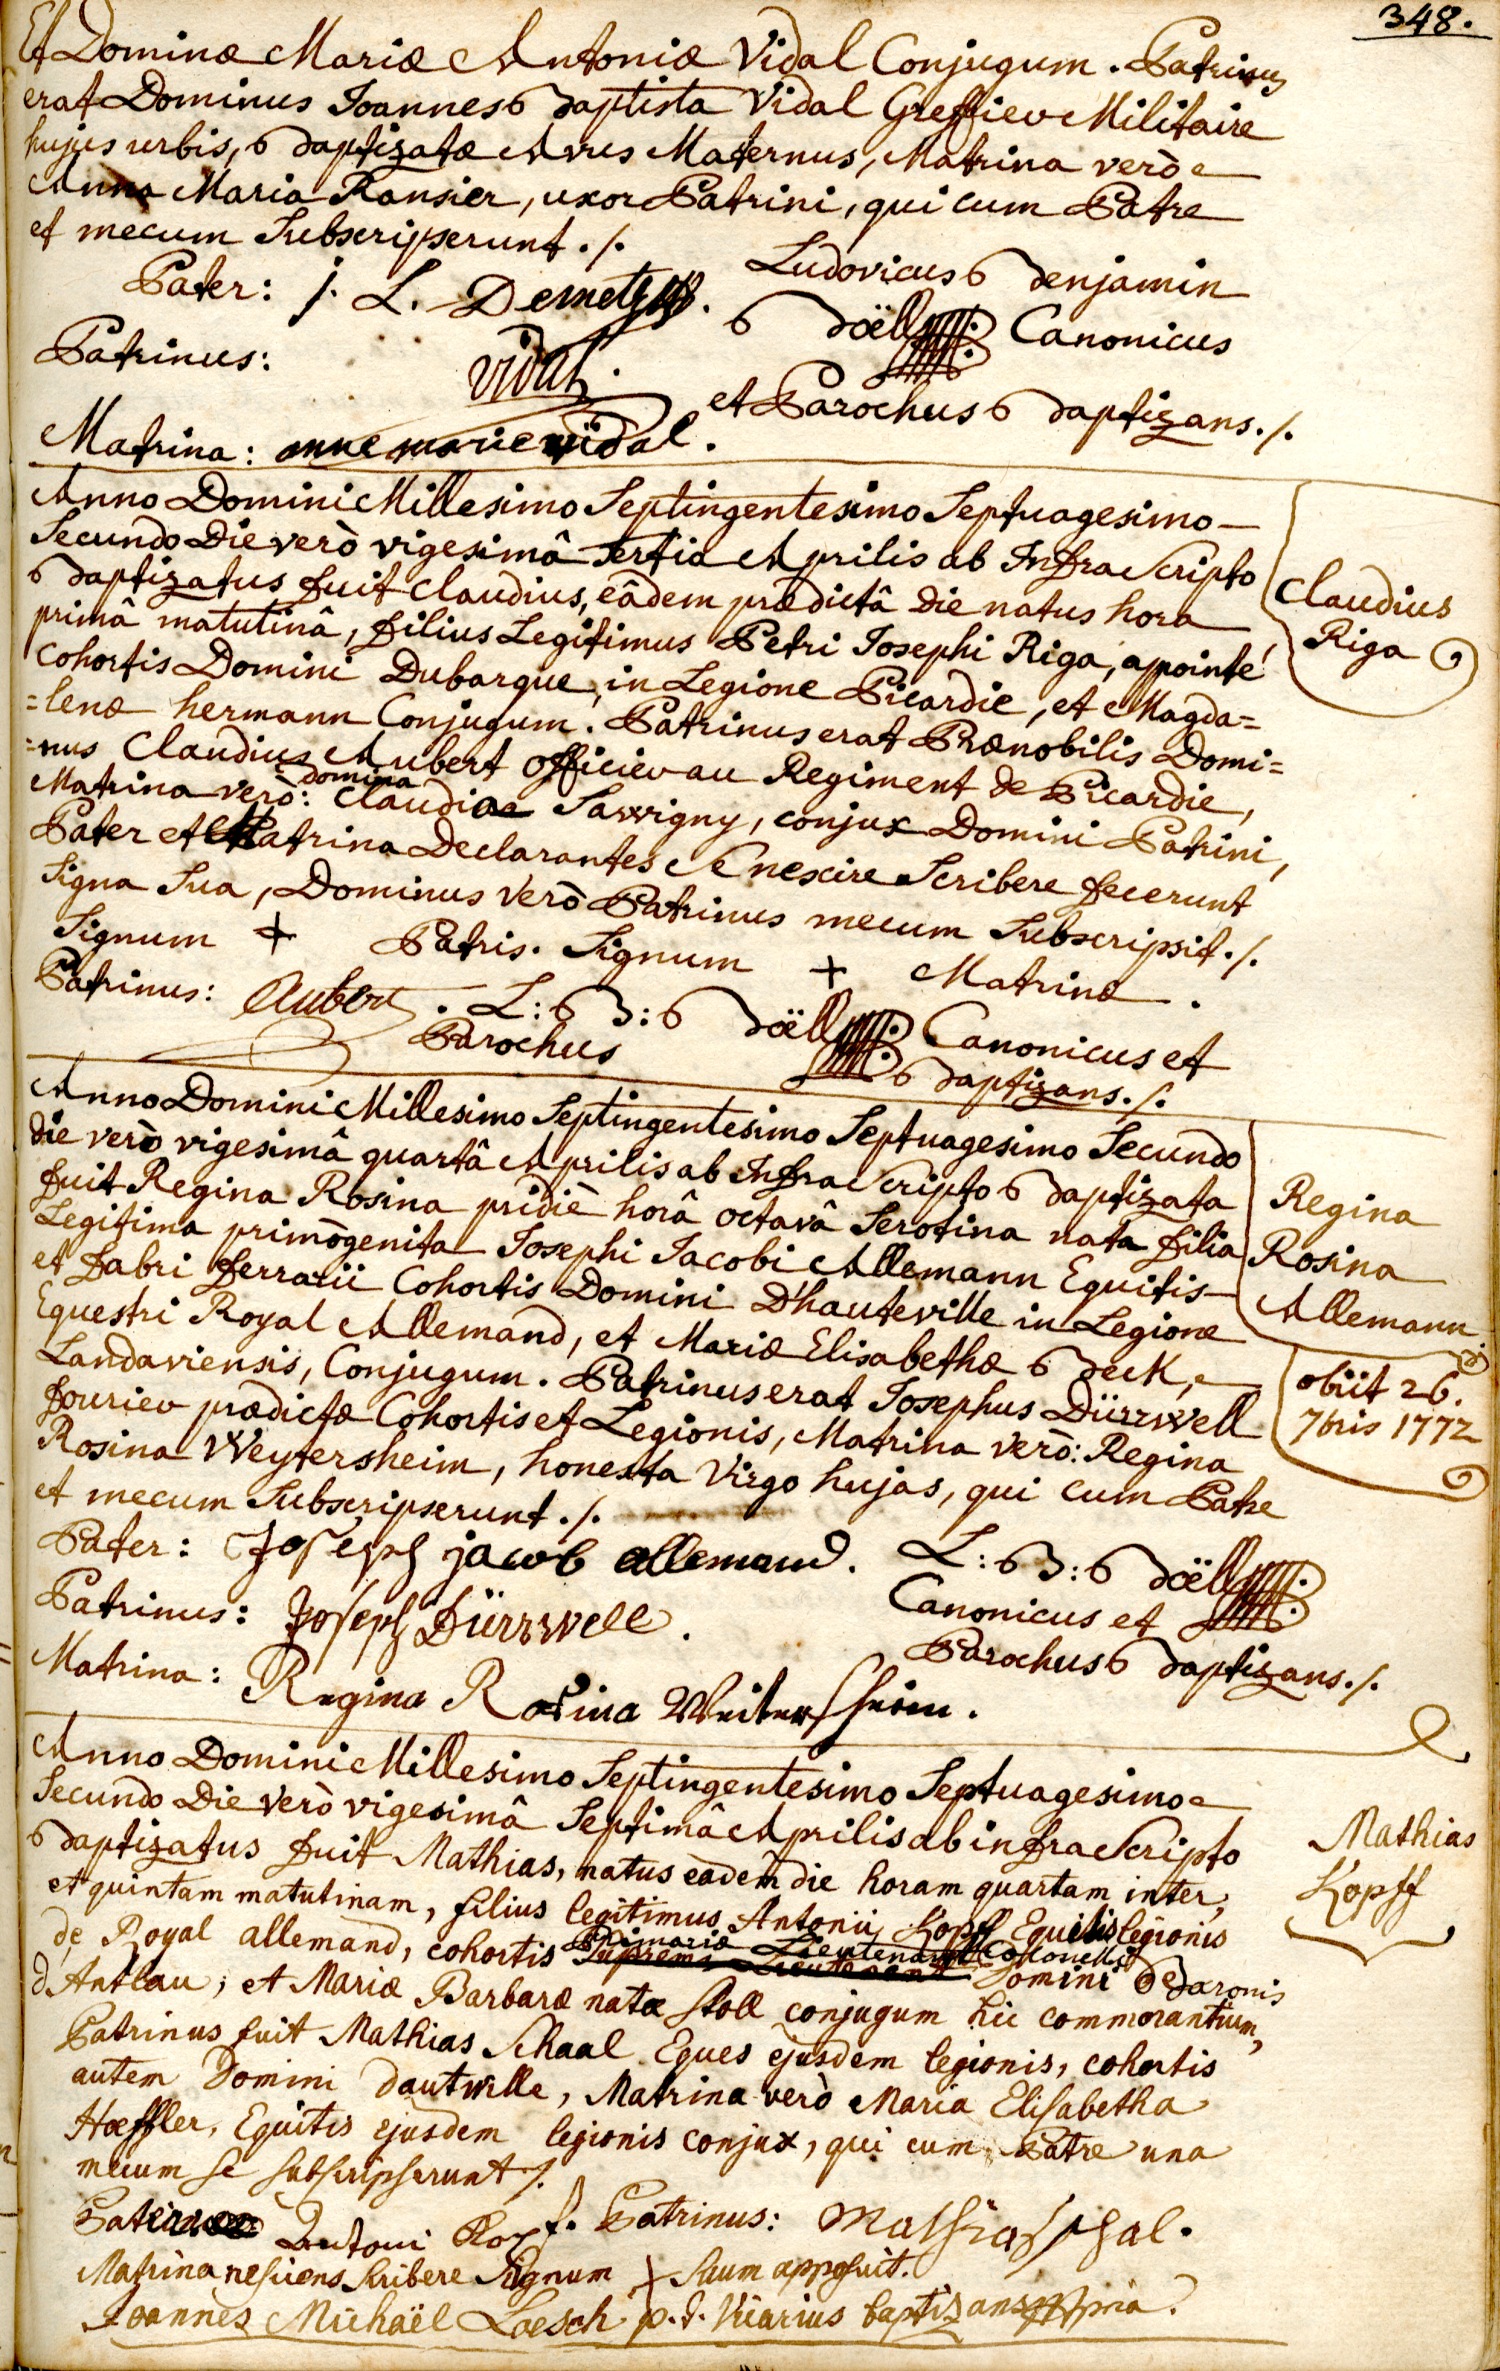 348.
Et Dominæ Mariæ Antoniæ Vidal Conjugum. Patrinus
erat Dominus Joannes Baptista Vidal Greffier Militaire
hujus urbis, Baptizatæ Avus Maternus, Matrina verò
Anna Maria Ransier, uxor Patrini, qui cum Patre
et mecum Subscripserunt ./.
Pater: J. L. Demetz.
Ludovicus Benjamin
Boëll Canonicus
Patrinus: vidal.
et Parochus Baptizans ./.
Matrina: anne marie vidal.
Anno Domini Millesimo Septingentesimo Septuagesimo
Secundo Die verò vigesimâ tertia Aprilis ab InfraScripto
Baptizatus fuit Claudius, eâdem prædictâ Die natus hora
primâ matutinâ, filius Legitimus Petri Josephi Riga, apointé
Cohortis Domini Dubarque, in Legione Picardie, et Magda=
=lenæ hermann Conjugum. Patrinus erat Prænobilis Domi=
=nus Claudius Aubert officier au Regiment de Picardie,
Matrina verò: domina Claudiae Savvigny, conjux Domini Patrini,
Pater et Matrina Declarantes Se nescire Scribere fecerunt
Signa Sua, Dominus verò Patrinus mecum Subscripsit ./.
Signum + Patris. Signum + Matrinæ.
Patrinus: Aubert. L: B: Boëll Canonicus et
Parochus Baptizans ./.
Claudius
Riga
Anno Domini Millesimo Septingentesimo Septuagesimo Secundo
die verò vigesimâ quartâ Aprilis ab InfraScripto Baptizata
fuit Regina Rosina pridiè horâ octavâ Serotina nata filia
Legitima primògenita Josephi Jacobi Allemann Equitis
et fabri ferrarii Cohortis Domini D'hauteville in Legione
Equestri Royal Allemand, et Mariæ Elisabethæ Beck,
Landaviensis, Conjugum. Patrinus erat Josephus Dürrwell
fourier prædictæ Cohortis et Legionis, Matrina verò: Regina
Rosina Weytersheim, honesta Virgo hujas, qui cum Patre
et mecum Subscripserunt ./.
Regina
Rosina
Allemann
obiit 26.
7bris 1772
Pater: Joseph jacob allemand. L: B: Boëll
Patrinus: Joseph Dürrwell. Canonicus et
Parochus Baptizans ./.
Matrina: Regina Rosina Weitersheim.
Anno Domini Millesimo Septingentesimo Septuagesimo
Secundo Die verò vigesimâ Septimâ Aprilis ab infraScripto
Baptizatus fuit Mathias, natus eâdem die horam quartam inter,
et quintam matutinam, filius legitimus Antonii Kopff Equitis legionis
de Royal allemand, cohortis Primariæ Lieutenant Colonelli Domini Baronis
d'Antlau, et Mariæ Barbaræ natæ Stoll conjugum hic commorantium,
Patrinus fuit Mathias Schaal Eques ejusdem legionis, cohortis
autem Domini Dautwille, Matrina verò Maria Elisabetha
Hæffler, Equitis ejusdem legionis conjux, qui cum Patre una
mecum se subscripserunt ./.
Mathias
Kopff
Pater Antoni Kopf. Patrinus: Mathias Schal.
Matrina nesciens scribere signum + suum apposuit.
Joannes Michaël Loesch p.t. vicarius baptizans